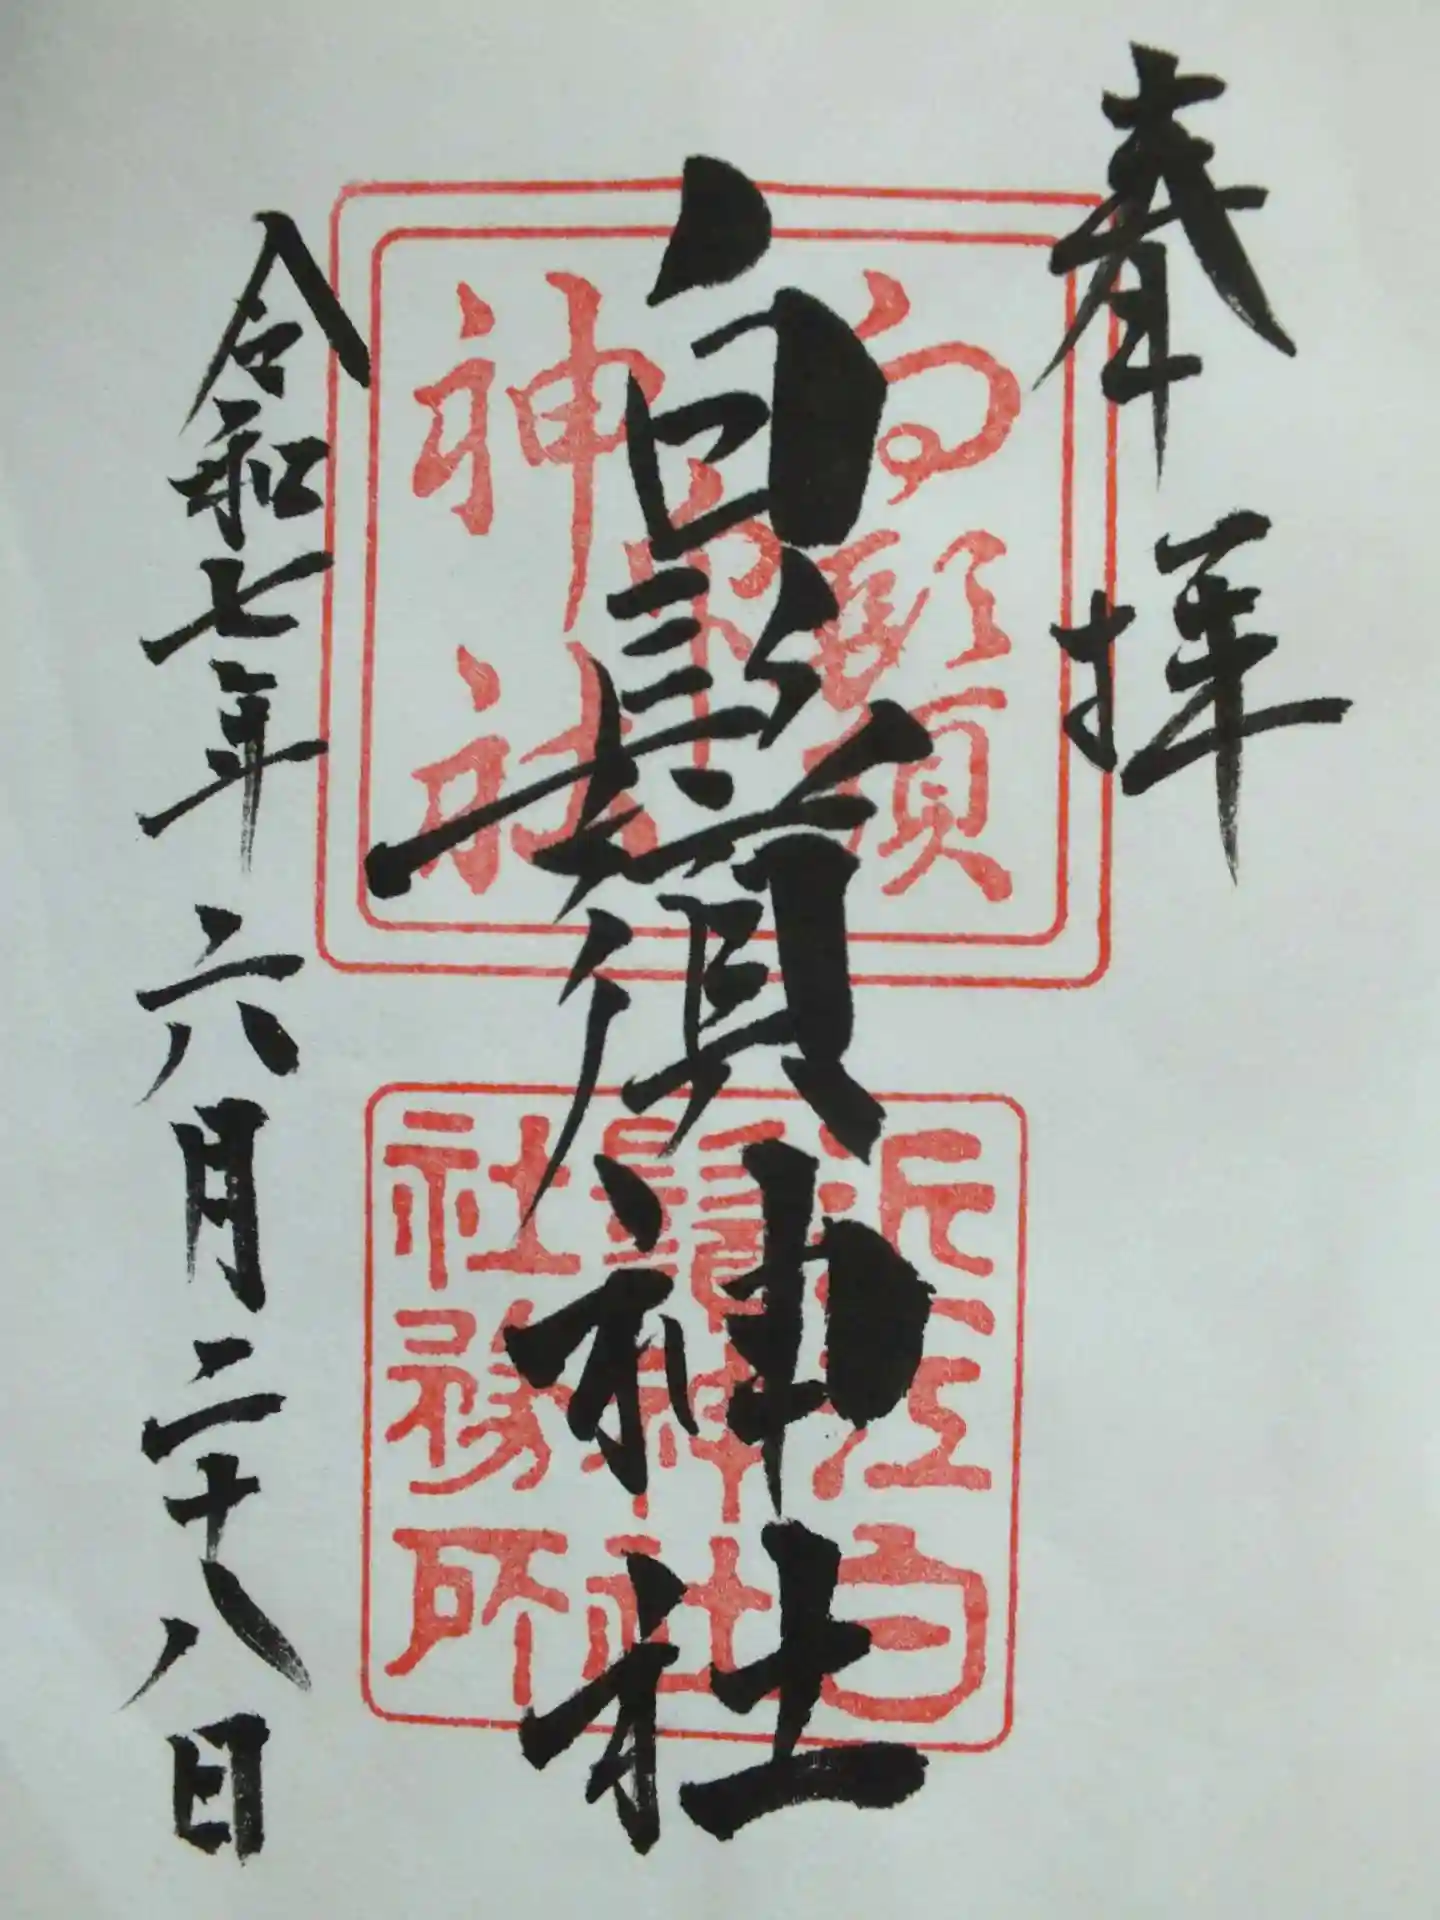 奉拝
白鬚神社
令和七年六月二十八日
近江白
鬚神社
社務所